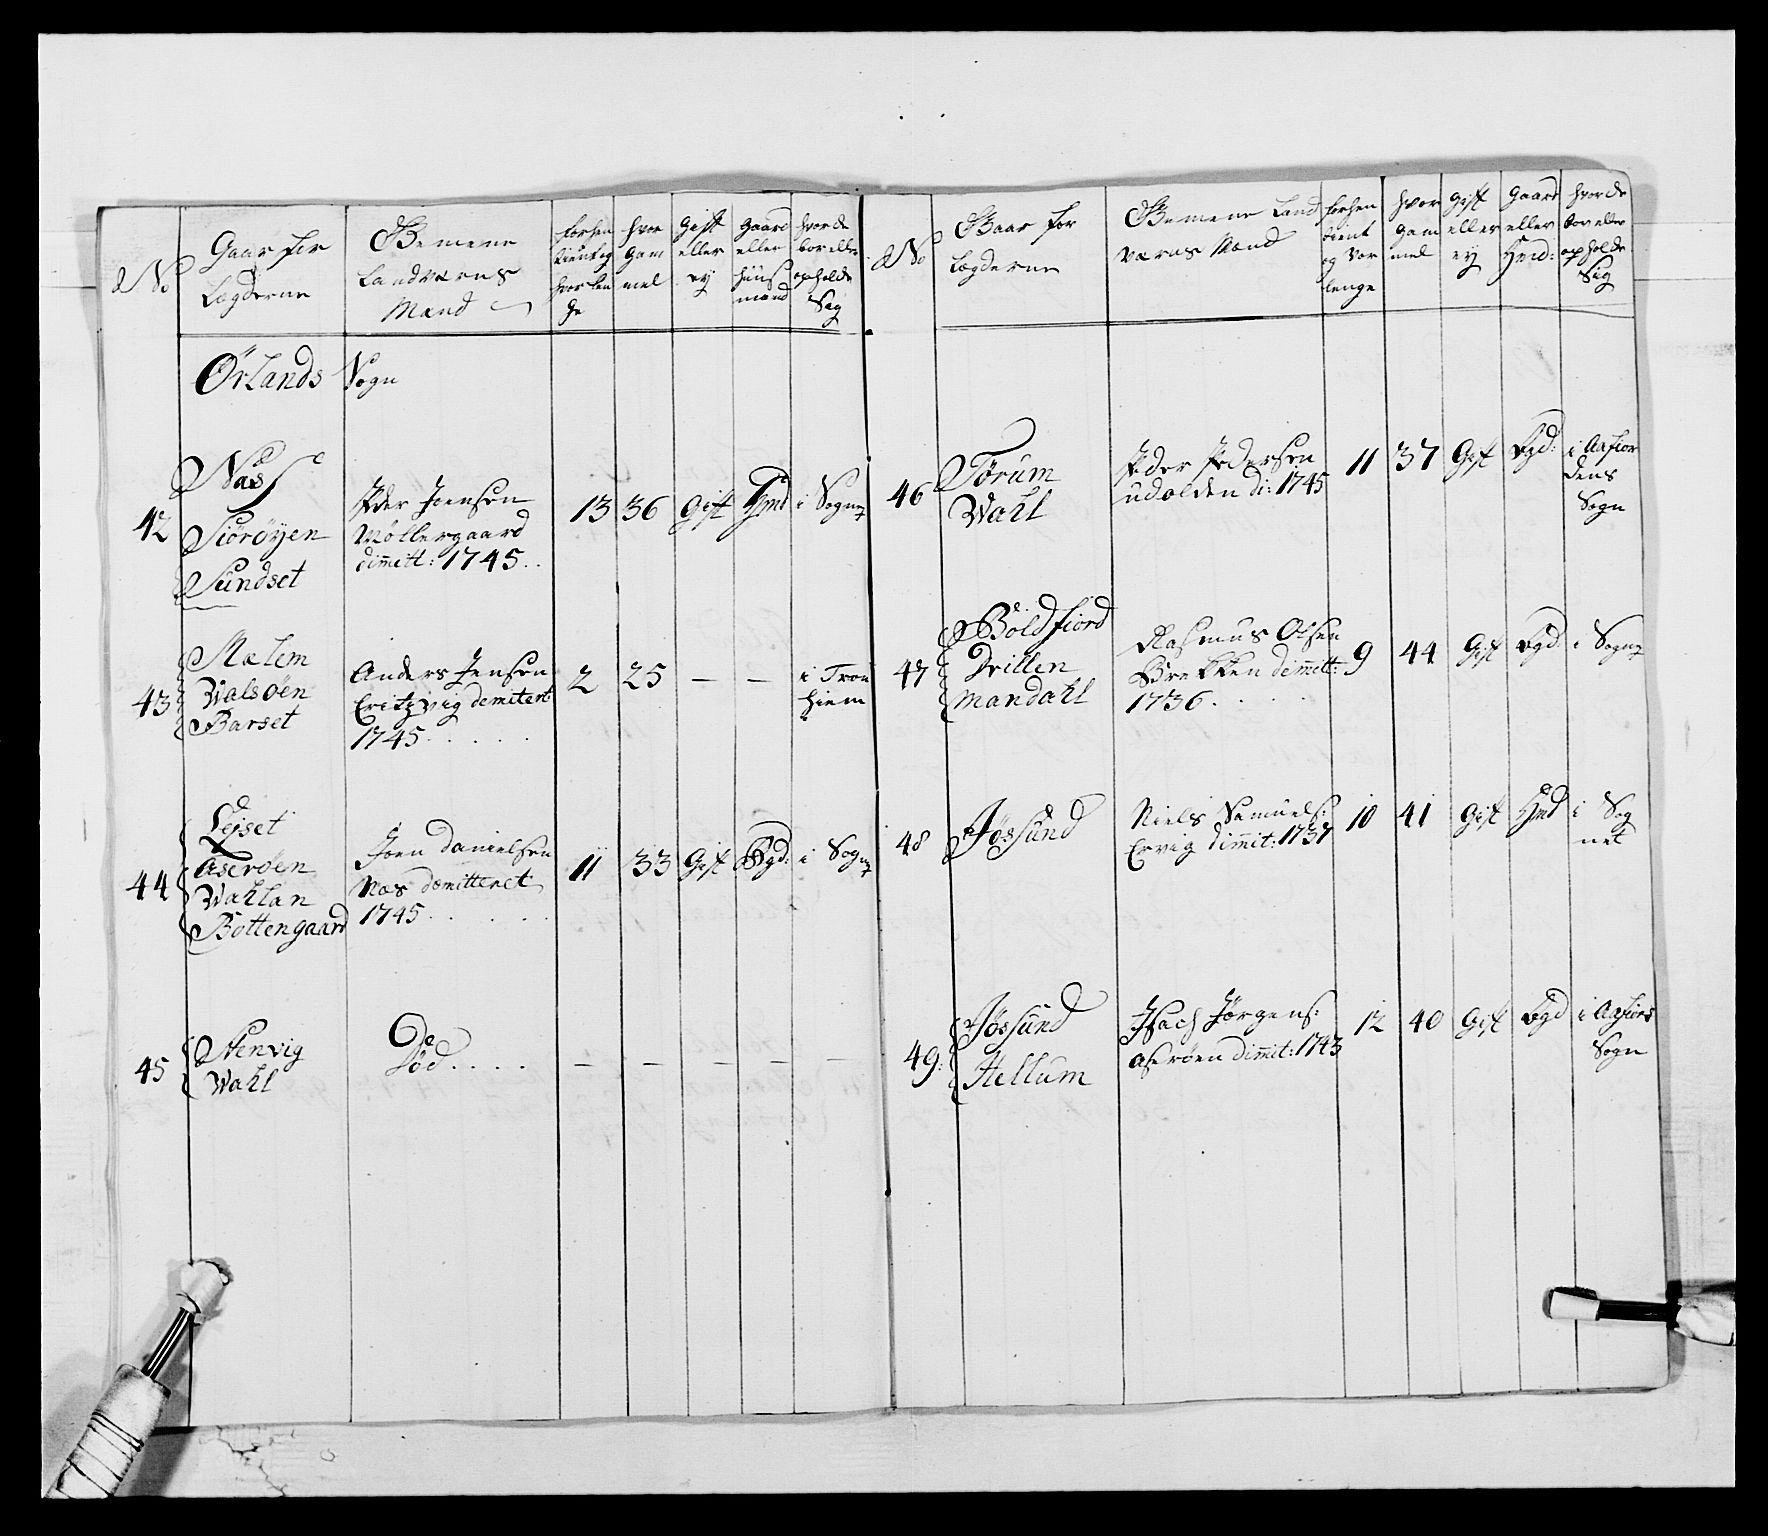 No
Gaar for
Lægderne
Gemene
Landværns
Mænd
forhen
tient og
hvor len
ge
hvor
gam
mel
Gift
eller
ey
Gaard
eller
huus
mand
hvor de
bor eller
opholde
Sig
Ørlands Sogn
42
Næs
Siørøyen
Sundset
Peder Joensen
Møllergaard
dimitt: 1745..
13 36 Gift Hmd i Sogn
43
Mælem
Walsøen
Barset
Anders Jensen
Critzvig demitert
1745.....
2 25 — —
i Tron
hiem
44
Lejset
Aserøen
Wahlan
Bottengaard
Joen Danielsen
Næs demitteret
1745.....
11 33 Gift Bgd: i Sogn
45
Stenvig
Wahl
Død....
— — — — —
No
Gaar for
Lægderne
Gemene Land
værns Mænd
forhen
tient
og vor
lenge
hvor
gam
mel
Gift
eller
ey
Gaard
eller
Hmd:
hvor de
bor eller
opholde
Sig
46
Tørum
Wahl
Peder Pedersen
udolden di: 1745
11 37 Gift Bgd:
i Aafior
dens
Sogn
47
Boldfiord
Tvillen
Mandahl
Rasmus Olsen
Brekken dimitt:
1736....
9 44 Gift Bgd i Sogn
48
Jøssund
Niels Samuels:
Ervig dimit: 1737
10 41 Gift Hmd
i Sog
net
49:
Jøssund
Hellum
Isach Jørgens:
aserøen dimit: 1743
12 40 Gift Bgd
i Aafiors
Sogn